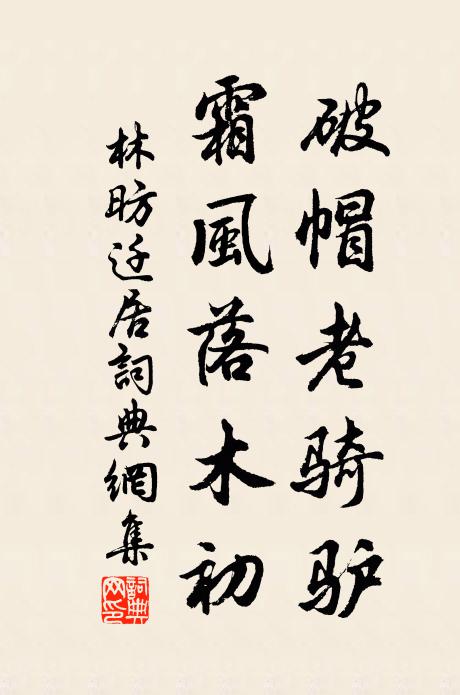 破帽老骑驴
霜風落木初
林昉迁居詞典網集
詞典网印